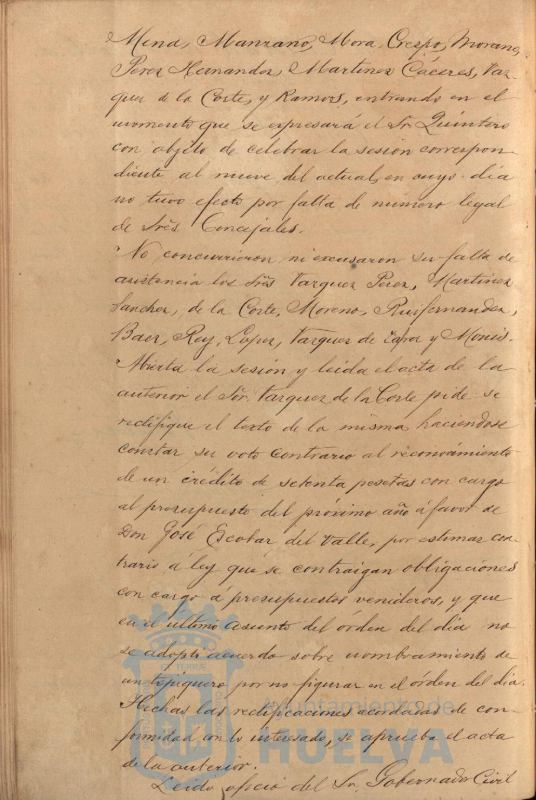 Mena, Manzano, Mora, Crespo, Moreno,
Perez Hernandez, Martinez Cáceres, Vaz-
quez de la Corte, y Ramos, entrando en el
momento que se expresará el Sr. Quintero
con objeto de celebrar la sesión correspon-
diente al nueve del actual, en cuyo dia
no tuvo efecto por falta de número legal
de Srēs Concejales.
No concurrieron ni excusaron su falta de
asistencia los Srēs Vazquez Perez, Martinez
Sanchez, de la Corte, Moreno, Ruifernandez,
Baez, Rey, Lopez, Vazquez de Zafra y
Abierta la sesión y leida el acta de la
anterior el Sr. Vazquez de la Corte pide se
rectifique el texto de la misma haciendose
constar su voto contrario al reconocimiento
de un crédito de setenta pesetas con cargo
al presupuesto del próximo año á favor de
Don José Escobar del Valle, por estimar con-
trario á ley que se contraigan obligaciones
con cargo a presupuestos venideros, y que
en el último asunto del órden del dia no
se adoptó acuerdo sobre nombramiento de
un topiquero por no figurar en el órden del dia.
Hechas las rectificaciones acordadas de con-
formidad con lo interesado, se aprueba el acta
de la anterior.
Leido oficio del Sr. Gobernador Civil
Ayuntamiento de
HUELVA